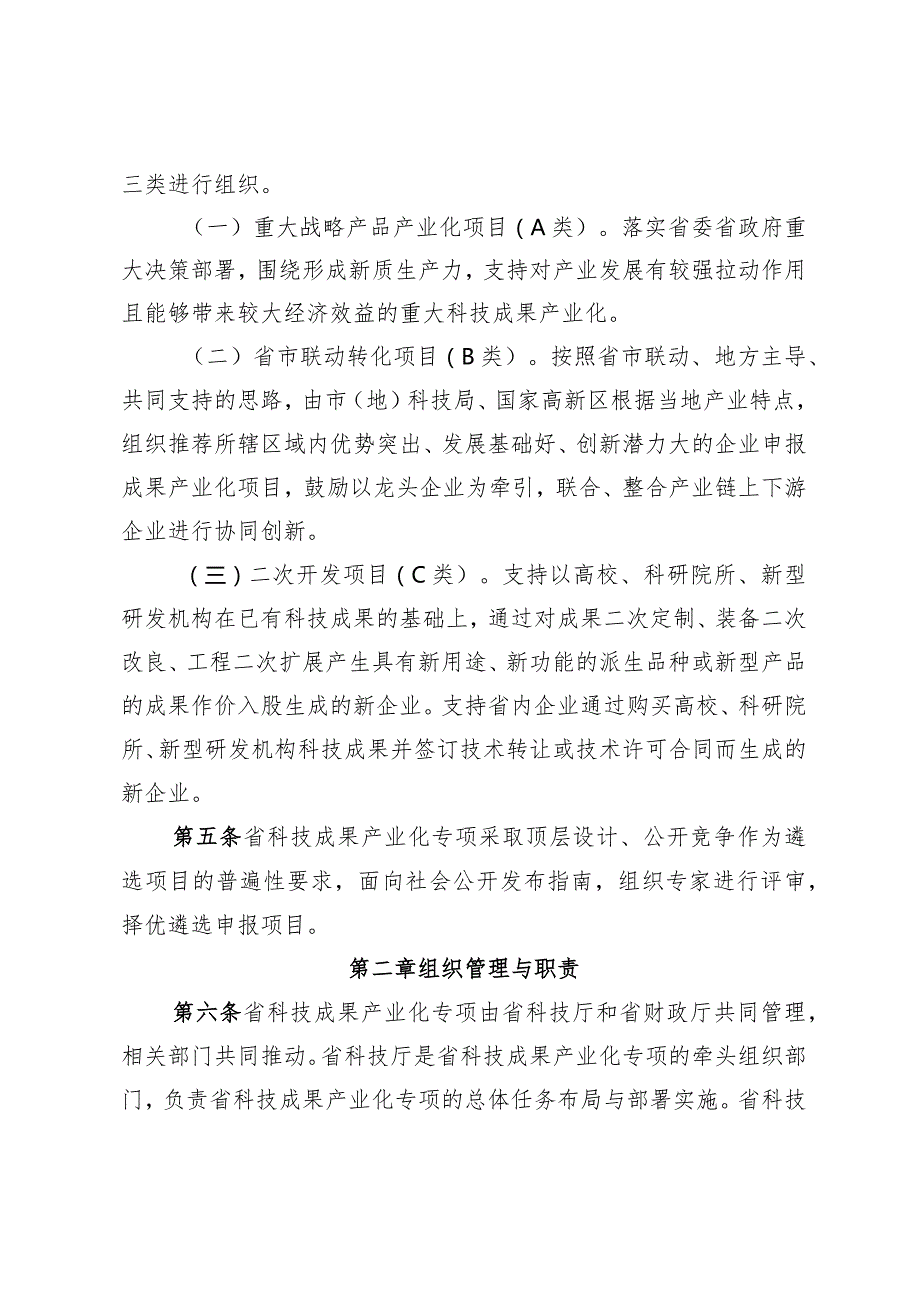 三类进行组织。
（一）重大战略产品产业化项目（A 类）。落实省委省政府重
大决策部署，围绕形成新质生产力，支持对产业发展有较强拉动作用
且能够带来较大经济效益的重大科技成果产业化。
（二）省市联动转化项目（B 类）。按照省市联动、地方主导、
共同支持的思路，由市（地）科技局、国家高新区根据当地产业特点，
组织推荐所辖区域内优势突出、发展基础好、创新潜力大的企业申报
成果产业化项目，鼓励以龙头企业为牵引，联合、整合产业链上下游
企业进行协同创新。
（三）二次开发项目（C 类）。支持以高校、科研院所、新型
研发机构在已有科技成果的基础上，通过对成果二次定制、装备二次
改良、工程二次扩展产生具有新用途、新功能的派生品种或新型产品
的成果作价入股生成的新企业。支持省内企业通过购买高校、科研院
所、新型研发机构科技成果并签订技术转让或技术许可合同而生成的
新企业。
第五条省科技成果产业化专项采取顶层设计、公开竞争作为遴
选项目的普遍性要求，面向社会公开发布指南，组织专家进行评审，
择优遴选申报项目。
第二章组织管理与职责
第六条省科技成果产业化专项由省科技厅和省财政厅共同管理，
相关部门共同推动。省科技厅是省科技成果产业化专项的牵头组织部
门，负责省科技成果产业化专项的总体任务布局与部署实施。省科技